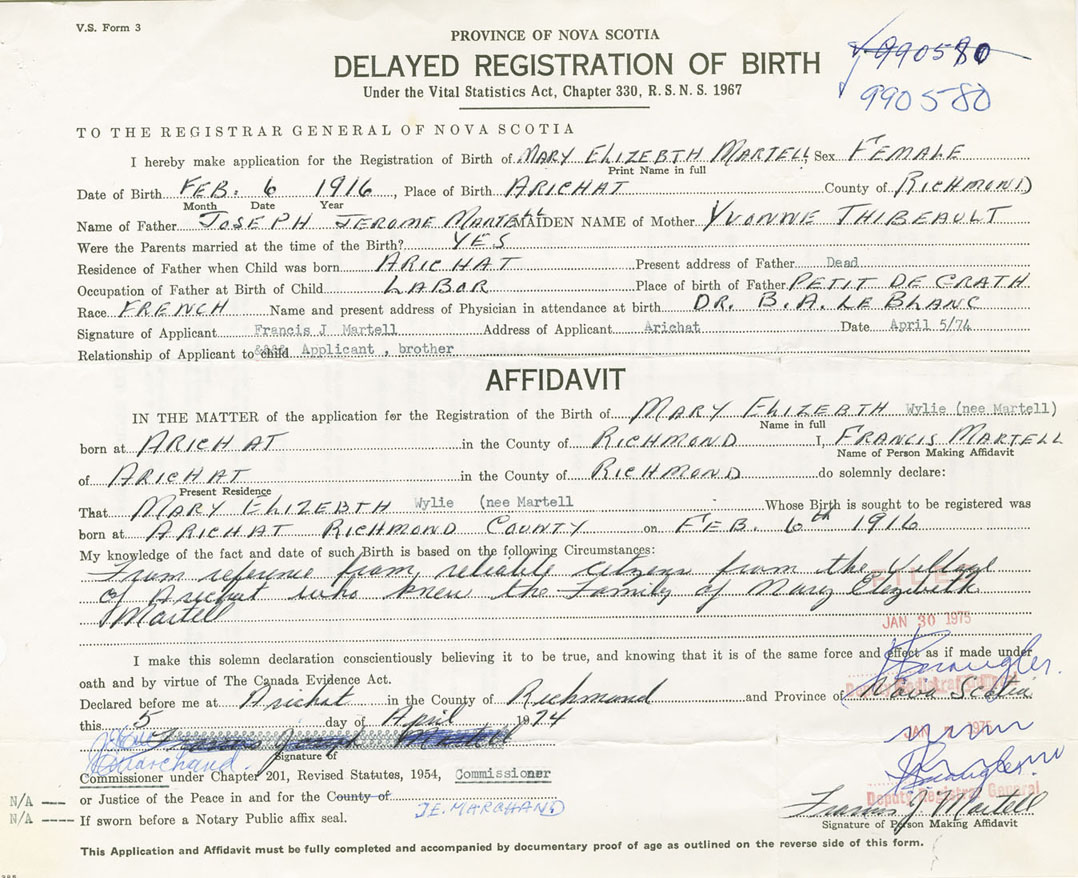 V.S. Form 3
PROVINCE OF NOVA SCOTIA
DELAYED REGISTRATION OF BIRTH
Under the Vital Statistics Act, Chapter 330, R.S.N.S. 1967
990580
990580
TO THE REGISTRAR GENERAL OF NOVA SCOTIA
I hereby make application for the Registration of Birth of MARY ELIZEBTH MARTELL, Sex FEMALE
Print Name in full
Date of Birth FEB. 6 1916, Place of Birth ARICHAT County of RICHMOND
Month Date Year
Name of Father JOSEPH JEROME MARTELL MAIDEN NAME of Mother YVONNE THIBEAULT
Were the Parents married at the time of the Birth? YES
Residence of Father when Child was born ARICHAT Present address of Father Dead
Occupation of Father at Birth of Child LABOR Place of birth of Father PETIT DE GRATH
Race FRENCH Name and present address of Physician in attendance at birth DR. B. A. LE BLANC
Signature of Applicant Francis J Martell Address of Applicant Arichat Date April 5/74
Relationship of Applicant to child Applicant, brother
AFFIDAVIT
IN THE MATTER of the application for the Registration of the Birth of MARY ELIZEBTH Wylie (nee Martell)
Name in full
born at ARICHAT in the County of RICHMOND I, FRANCIS MARTELL
Name of Person Making Affidavit
of ARICHAT in the County of RICHMOND do solemnly declare:
Present Residence
That MARY ELIZEBTH Wylie (nee Martell Whose Birth is sought to be registered was
born at ARICHAT RICHMOND COUNTY on FEB. 6th 1916
My knowledge of the fact and date of such Birth is based on the following Circumstances:
From reference from reliable citizens from the Village
of Arichat who knew the Family of Mary Elezibeth
Martell
FILED
JAN 30 1975
I make this solemn declaration conscientiously believing it to be true, and knowing that it is of the same force and effect as if made under
oath and by virtue of The Canada Evidence Act.
Deputy Registrar General
Declared before me at Arichat in the County of Richmond and Province of Nova Scotia
this 5 day of April 1974
Francis Joseph Martell
Marchand
Signature of
Commissioner under Chapter 201, Revised Statutes, 1954, Commissioner
N/A --- or Justice of the Peace in and for the County of
J.E. MARCHAND
N/A ---- If sworn before a Notary Public affix seal.
JAN 1975
Deputy Registrar General
Francis J Martell
Signature of Person Making Affidavit
This Application and Affidavit must be fully completed and accompanied by documentary proof of age as outlined on the reverse side of this form.